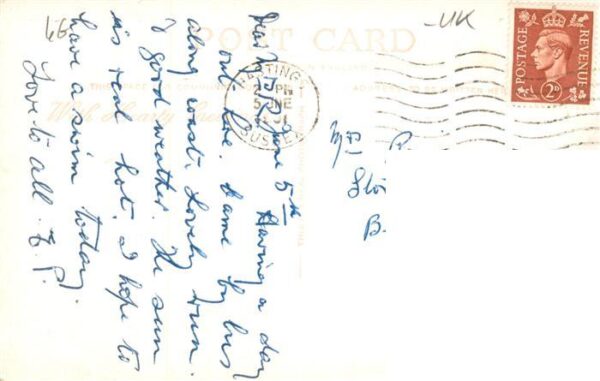 UK
66
POST CARD
POSTAGE
REVENUE
2D
HASTINGS
5 JNE
SUSSEX
June 5th Having a day
out here. Came by bus
along coast. Lovely run
& good weather. The sun
is real hot. I hope to
have a swim today.
Love to all. E. P.
Mrs P
B.